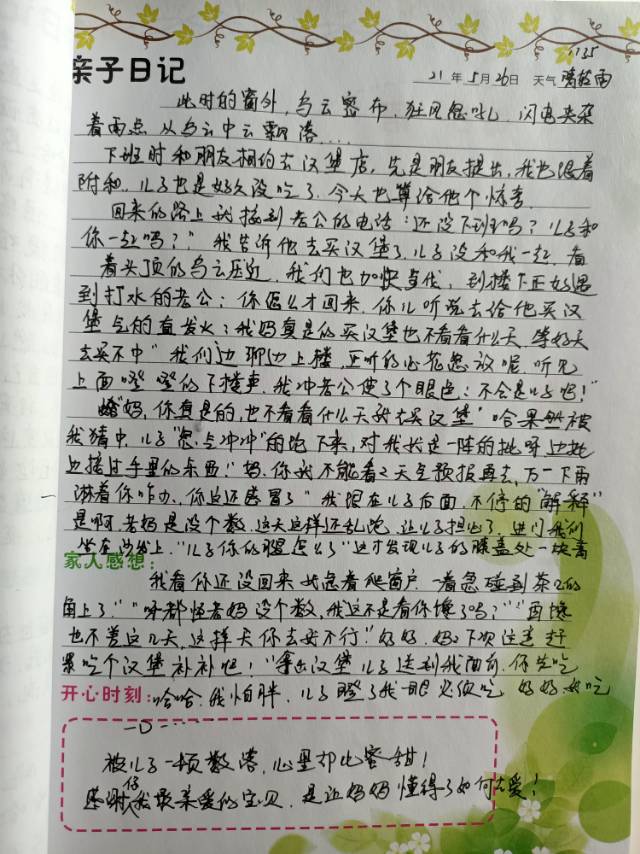 6135
亲子日记
21年5月26日 天气 雨
此时的窗外,乌云密布,狂风怒吼,闪电夹杂
着雨点从乌云中飘落....
下班时和朋友相约去汉堡店,先是朋友提出,我也跟着
附和,儿子也是好久没吃了,今天也算给他个惊喜
回来的路上我接到老公的电话:还没下班吗?儿子和
你一起吗?"我告诉他去买汉堡了,儿子没和我一起,看
着头顶的乌云压近,我们也加快步伐,到楼下正好遇
到打水的老公:你怎么才回来,你儿听说去给他买汉
堡气的直发火:我妈真是的买汉堡也不看看什么天,等好天
去买不中"我们边聊边上楼,正听的心花怒放呢,听见
上面噔噔的下楼声,我冲老公使了个眼色:不会是儿子吧!"
"妈,你真是的,也不看看什么天我去买汉堡"哈果然被
我猜中,儿子"怒气冲冲"的跑下来,对我就是一阵的批呀边批
边接过手里的东西!"妈,你就不能看看天气预报再去,万一下雨
淋着你咋办,你这还感冒了"我跟在儿子后面,不停的"解释"
是啊,老妈是没个数,这天这样还乱跑,让儿子担心了,进门我们
坐在沙发上,"儿子你的腿怎么了"这才发现儿子的膝盖处一块青
家人感想:
我看你还没回来我急着爬窗户,一着急碰到茶几的
角上了""呀都怪老妈没个数,我这不是看你馋了吗?""再馋
也不差这几天,这样天你去买不行"好好,妈下次注意赶
紧吃个汉堡补补吧!"拿出汉堡儿子送到我面前,你先吃
开心时刻:哈哈,我怕胖,儿子瞪了我一眼必须吃,好好,我吃
一口....
被儿子一顿数落,心里却比蜜甜!
感谢你我最亲爱的宝贝,是让妈妈懂得了如何去爱!